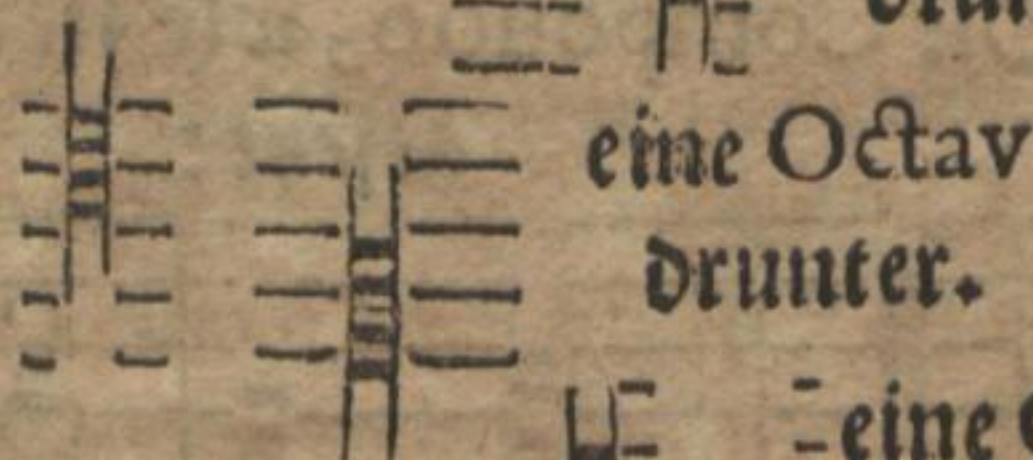 eine Octav
drunter.
eine